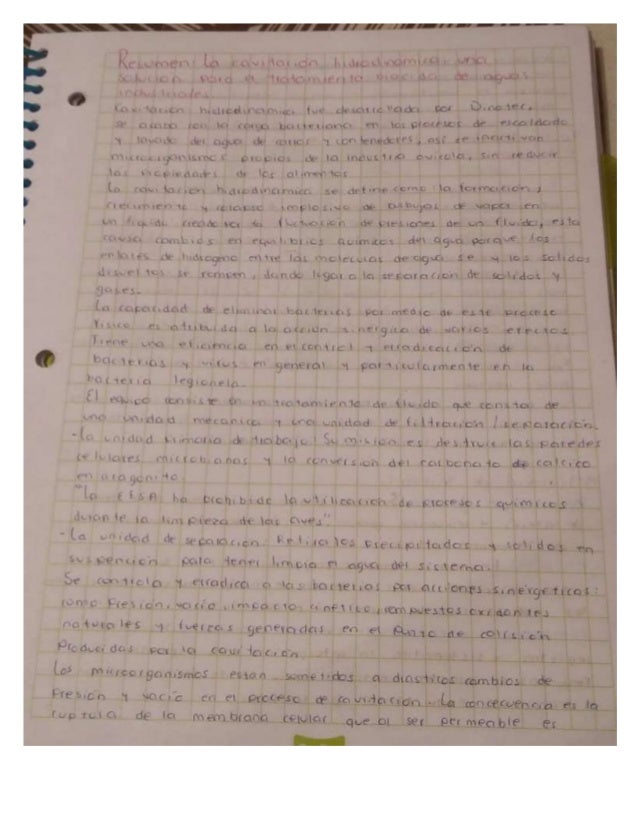 Resumen: La cavitación hidrodinámica: una
solución para el tratamiento biocida de aguas
industriales.
Cavitación hidrodinamica fue desarrollada por Dinotec,
se acaba con la carga bacteriana en los procesos de escaldado
y lavado del agua de carros y contenedores, así se inactivan
microorganismos propios de la industria avicola, sin reducir
las propiedades de los alimentos
La cavitacion hidrodinamica se define como la formación,
crecimiento y colapso implosivo de burbujas de vapor en
un liquido creado por la fluctuación de presiones de un fluido, esta
causa cambios en equilibrios quimicos del agua porque los
enlaces de hidrogeno entre las moleculas de agua se y los solidos
disueltos se rompen, dando lugar a la separacion de solidos y
gases.
La capacidad de eliminar bacterias por medio de este proceso
fisico es atribuida a la acción sinergica de varios efectos
Tiene una eficiencia en el control y erradicación de
bacterias y virus en general y particularmente en la
bacteria legionela.
El equipo consiste en un tratamiento de fluido que consta de
una unidad mecanica y una unidad de filtracion / separacion.
-La unidad primaria de trabajo: Su mision es destruir las paredes
celulares microbianas y la conversion del carbonato de calcico
en aragonito.
"La EFSA ha prohibido la utilizacion de procesos quimicos
durante la limpieza de las aves".
-La unidad de separación. Retira los precipitados y solidos en
suspencion para tener limpia el agua del sistema.
Se controla y erradica a las bacterias por acciones sinergeticos:
como Presion, vacio, impacto cinetico, compuestos oxidantes
naturales y fuerzas generadas en el punto de colisión
Producidas por la cavitación
Los microorganismos estan sometidos a drasticos cambios de
Presion y vacio en el proceso de cavitacion. La concecuencia es la
ruptura de la membrana celular que al ser permeable es